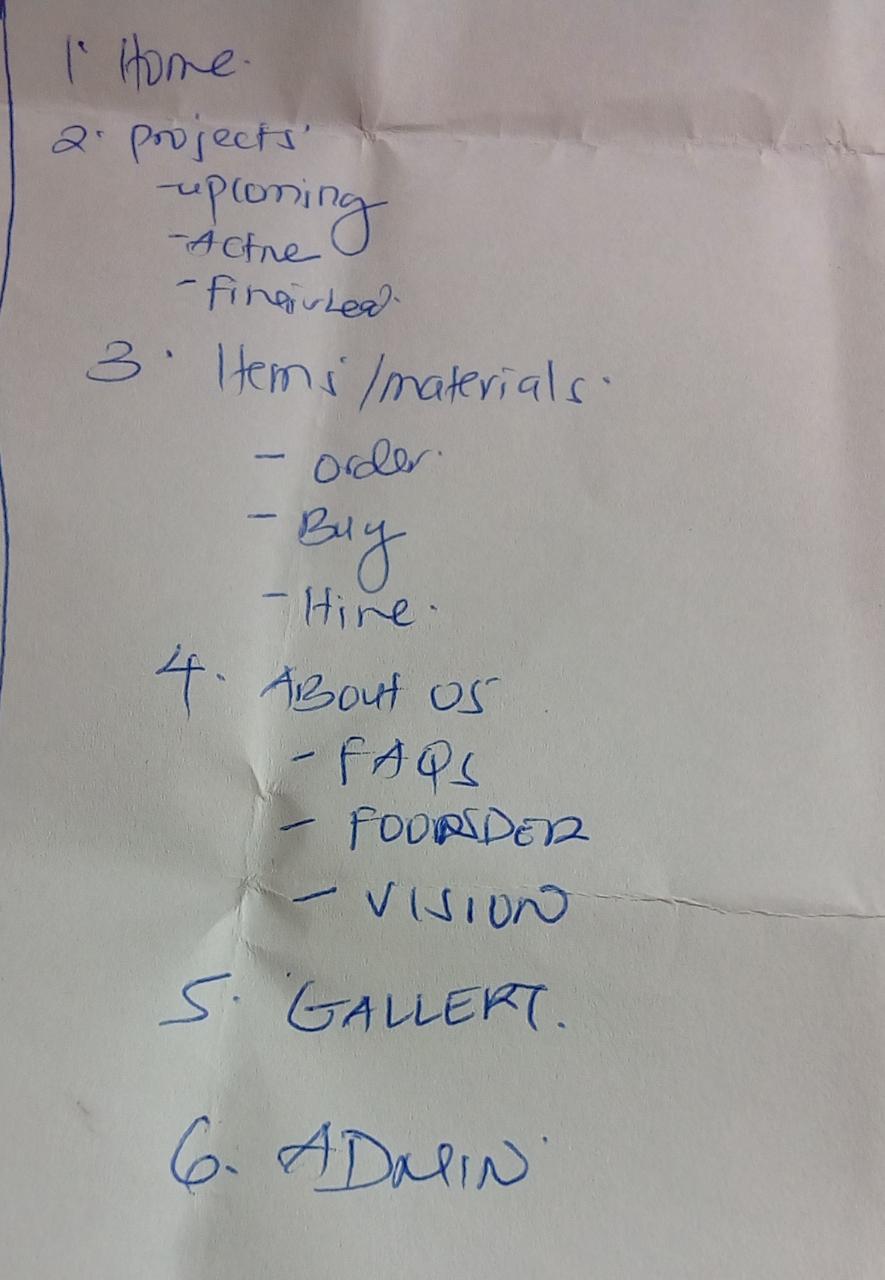 1. Home.
2. projects
- upcoming
- Active
- finished.
3. Items/materials.
- order.
- Buy
- Hire.
4. ABout US
- FAQs
- FOUNDER
- VISION
5. GALLERY.
6. ADMIN